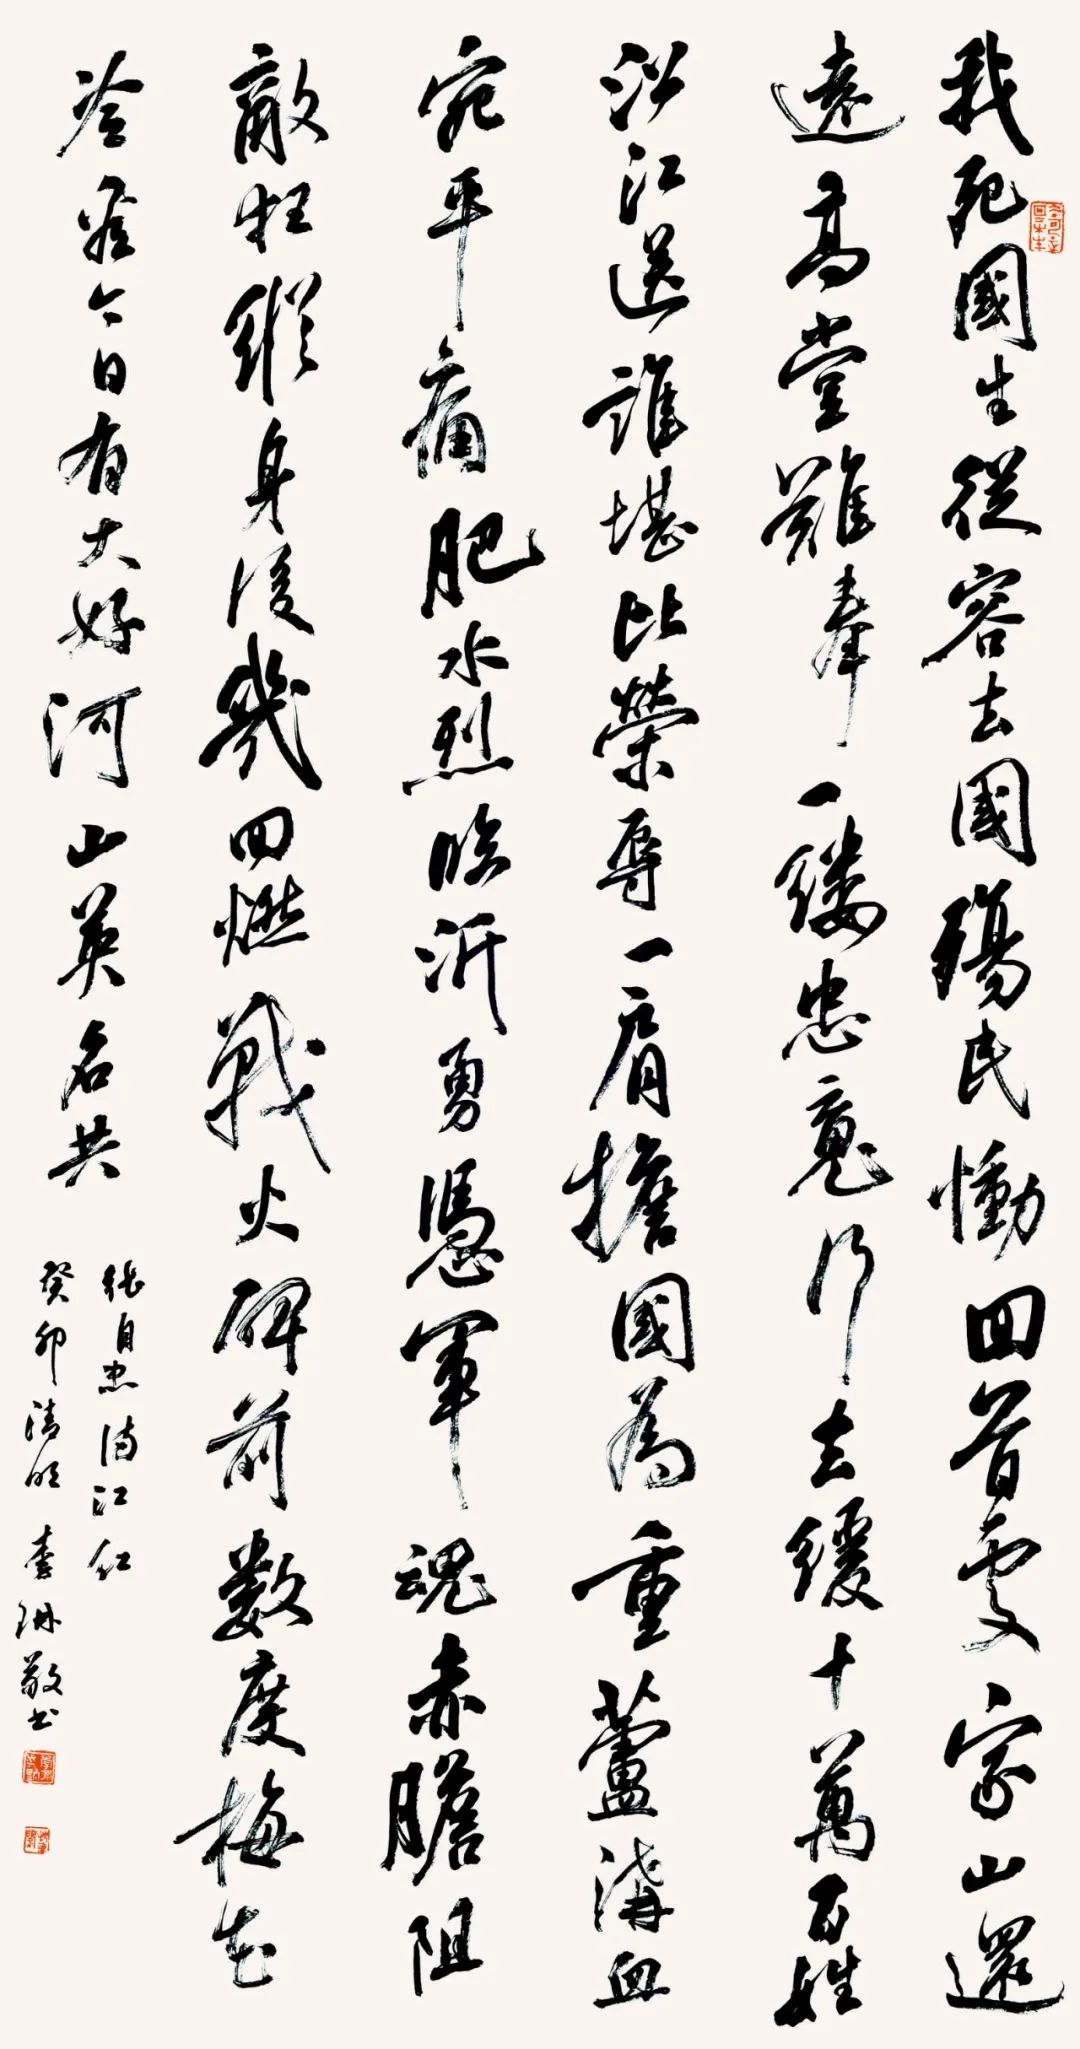 我死國生從容去國殤民慟回首處家山還
遠高堂難奉一縷忠魂行去緩十萬百姓
沿江送誰堪比榮辱一肩擔國為重蘆溝血
宛平痛肥水烈臨沂勇憑軍魂赤膽阻
敵狂縱身後幾回燃戰火碑前數度梅花
冷今日有大好河山英名共
張自忠滿江紅
癸卯清明李敬書